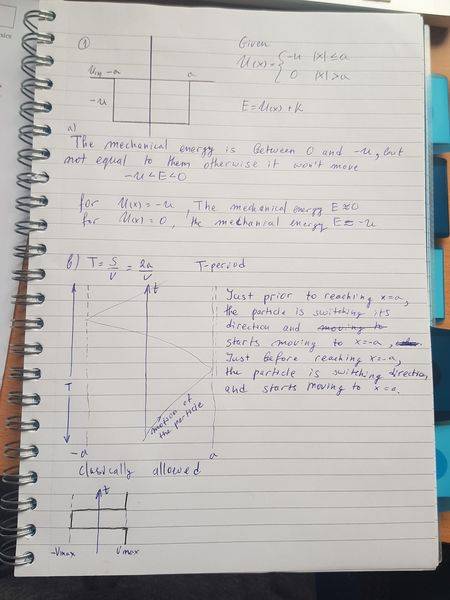 ①
Given
U(x) -a a
U(x) = { -u |x| ≤ a
0 |x| > a
-u
E = U(x) + K
a)
The mechanical energy is between 0 and -u, but
not equal to them otherwise it won't move
-u < E < 0
for U(x) = -u, The mechanical energy E ≈ 0
for U(x) = 0, the mechanical energy E ≈ -u
b) T = S/V = 2a/V T-period
t
Just prior to reaching x=a,
the particle is switching its
direction and moving to
starts moving to x=-a,
Just before reaching x=-a,
the particle is switching direction,
and starts moving to x=a.
T
motion of
the particle
-a a
classically allowed
t
-Vmax Vmax